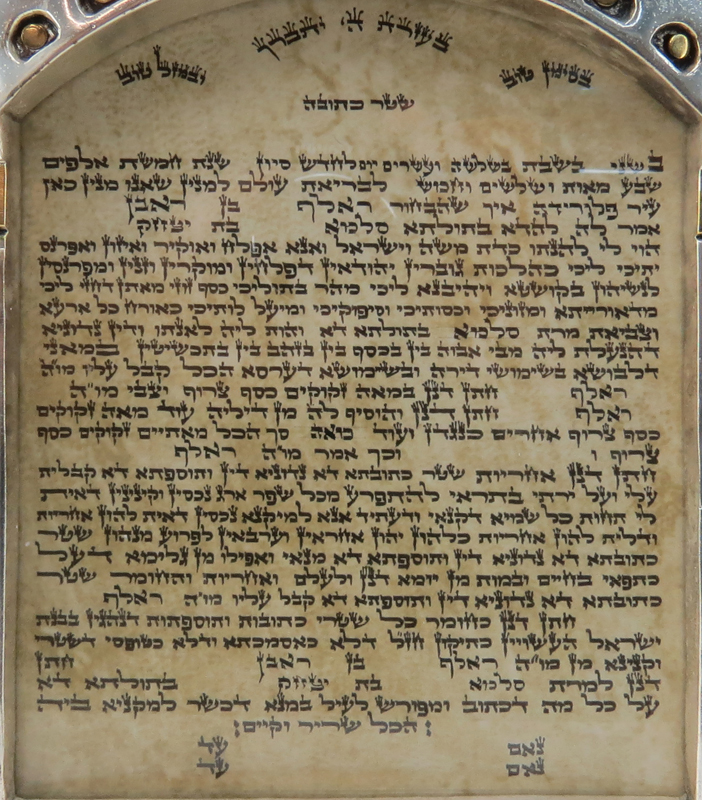 בעזרת ה׳ יתברך
בסימן טוב ובמזל טוב
שטר כתובה
בשני בשבת בשלשה ועשרים יום לחדש סיון שנת חמשת אלפים
שבע מאות ושלשים לבריאת עולם למנין שאנו מנין כאן
עיר פלורידה איך שהבחור ראלף בן ראבן
אמר לה להדא בתולתא סלכוא בת יצחק
הוי לי לאנתו כדת משה וישראל ואנא אפלח ואוקיר ואיזון ואפרנס
יתיכי ליכי כהלכות גוברין יהודאין דפלחין ומוקרין וזנין ומפרנסין
לנשיהון בקושטא ויהיבנא ליכי מהר בתוליכי כסף זוזי מאתן דחזי ליכי
מדאורייתא ומזוניכי וכסותיכי וסיפוקיכי ומיעל לותיכי כאורח כל ארעא
וצביאת מרת סלכוא בתולתא דא והות ליה לאנתו ודין נדוניא
דהנעלת ליה מבי אבוה בין בכסף בין בזהב בין בתכשיטין במאני
דלבושא בשימושי דירה ובשימושא דערסא הכל קבל עליו מו״ה
ראלף חתן דנן במאה זקוקים כסף צרוף וצבי מו״ה
ראלף חתן דנן והוסיף לה מן דיליה עוד מאה זקוקים
כסף צרוף אחרים כנגדן ועוד מאה סך הכל מאתיים זקוקים כסף
צרוף ו וכך אמר מו״ה ראלף
חתן דנן אחריות שטר כתובתא דא נדוניא דין ותוספתא דא קבלית
עלי ועל ירתי בתראי להתפרע מכל שפר ארג נכסין וקנינין דאית
לי תחות כל שמיא דקנאי ודעתיד אנא למיקנא נכסין דאית להון אחריות
ודלית להון אחריות כלהון יהון אחראין וערבאין לפרוע מנהון שטר
כתובתא דא נדוניא דין ותוספתא דא מנאי ואפילו מן גלימא דעל
כתפאי בחיים ובמות מן יומא דנן ולעלם ואחריות והחומר שטר
כתובתא דא נדוניא דין ותוספתא דא קבל עליו מו״ה ראלף
חתן דנן כחומר כל שטרי כתובות ותוספתות דנהגין בבנת
ישראל העשויין כתיקון חז״ל דלא כאסמכתא ודלא כטופסי דשטר
וקנינא מן מו״ה ראלף בן ראבן חתן
דנן למרת סלכוא בת יצחק בתולתא דא
על כל מה דכתוב ומפורש לעיל במנא דכשר למקניא ביה
הכל שריר וקיים:
נאם עד
נאם עד